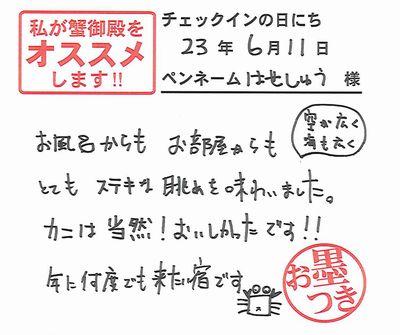 私が蟹御殿を
オススメ
します!!
チェックインの日にち
23年6月11日
ペンネーム はせしゅう 様
空が広く
海も広く
お風呂からも お部屋からも
とても ステキな 眺めを味わいました。
カニは 当然!おいしかったです!!
年に何度でも来たい宿です
お墨つき